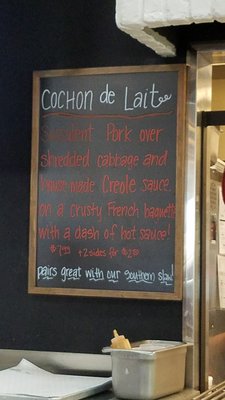 COCHON de Lait
Succulent Pork over
shredded cabbage and
house-made Creole sauce
on a crusty French baguette
with a dash of hot sauce!
$7.99 +2 sides for $2.50
pairs great with our southern slaw!